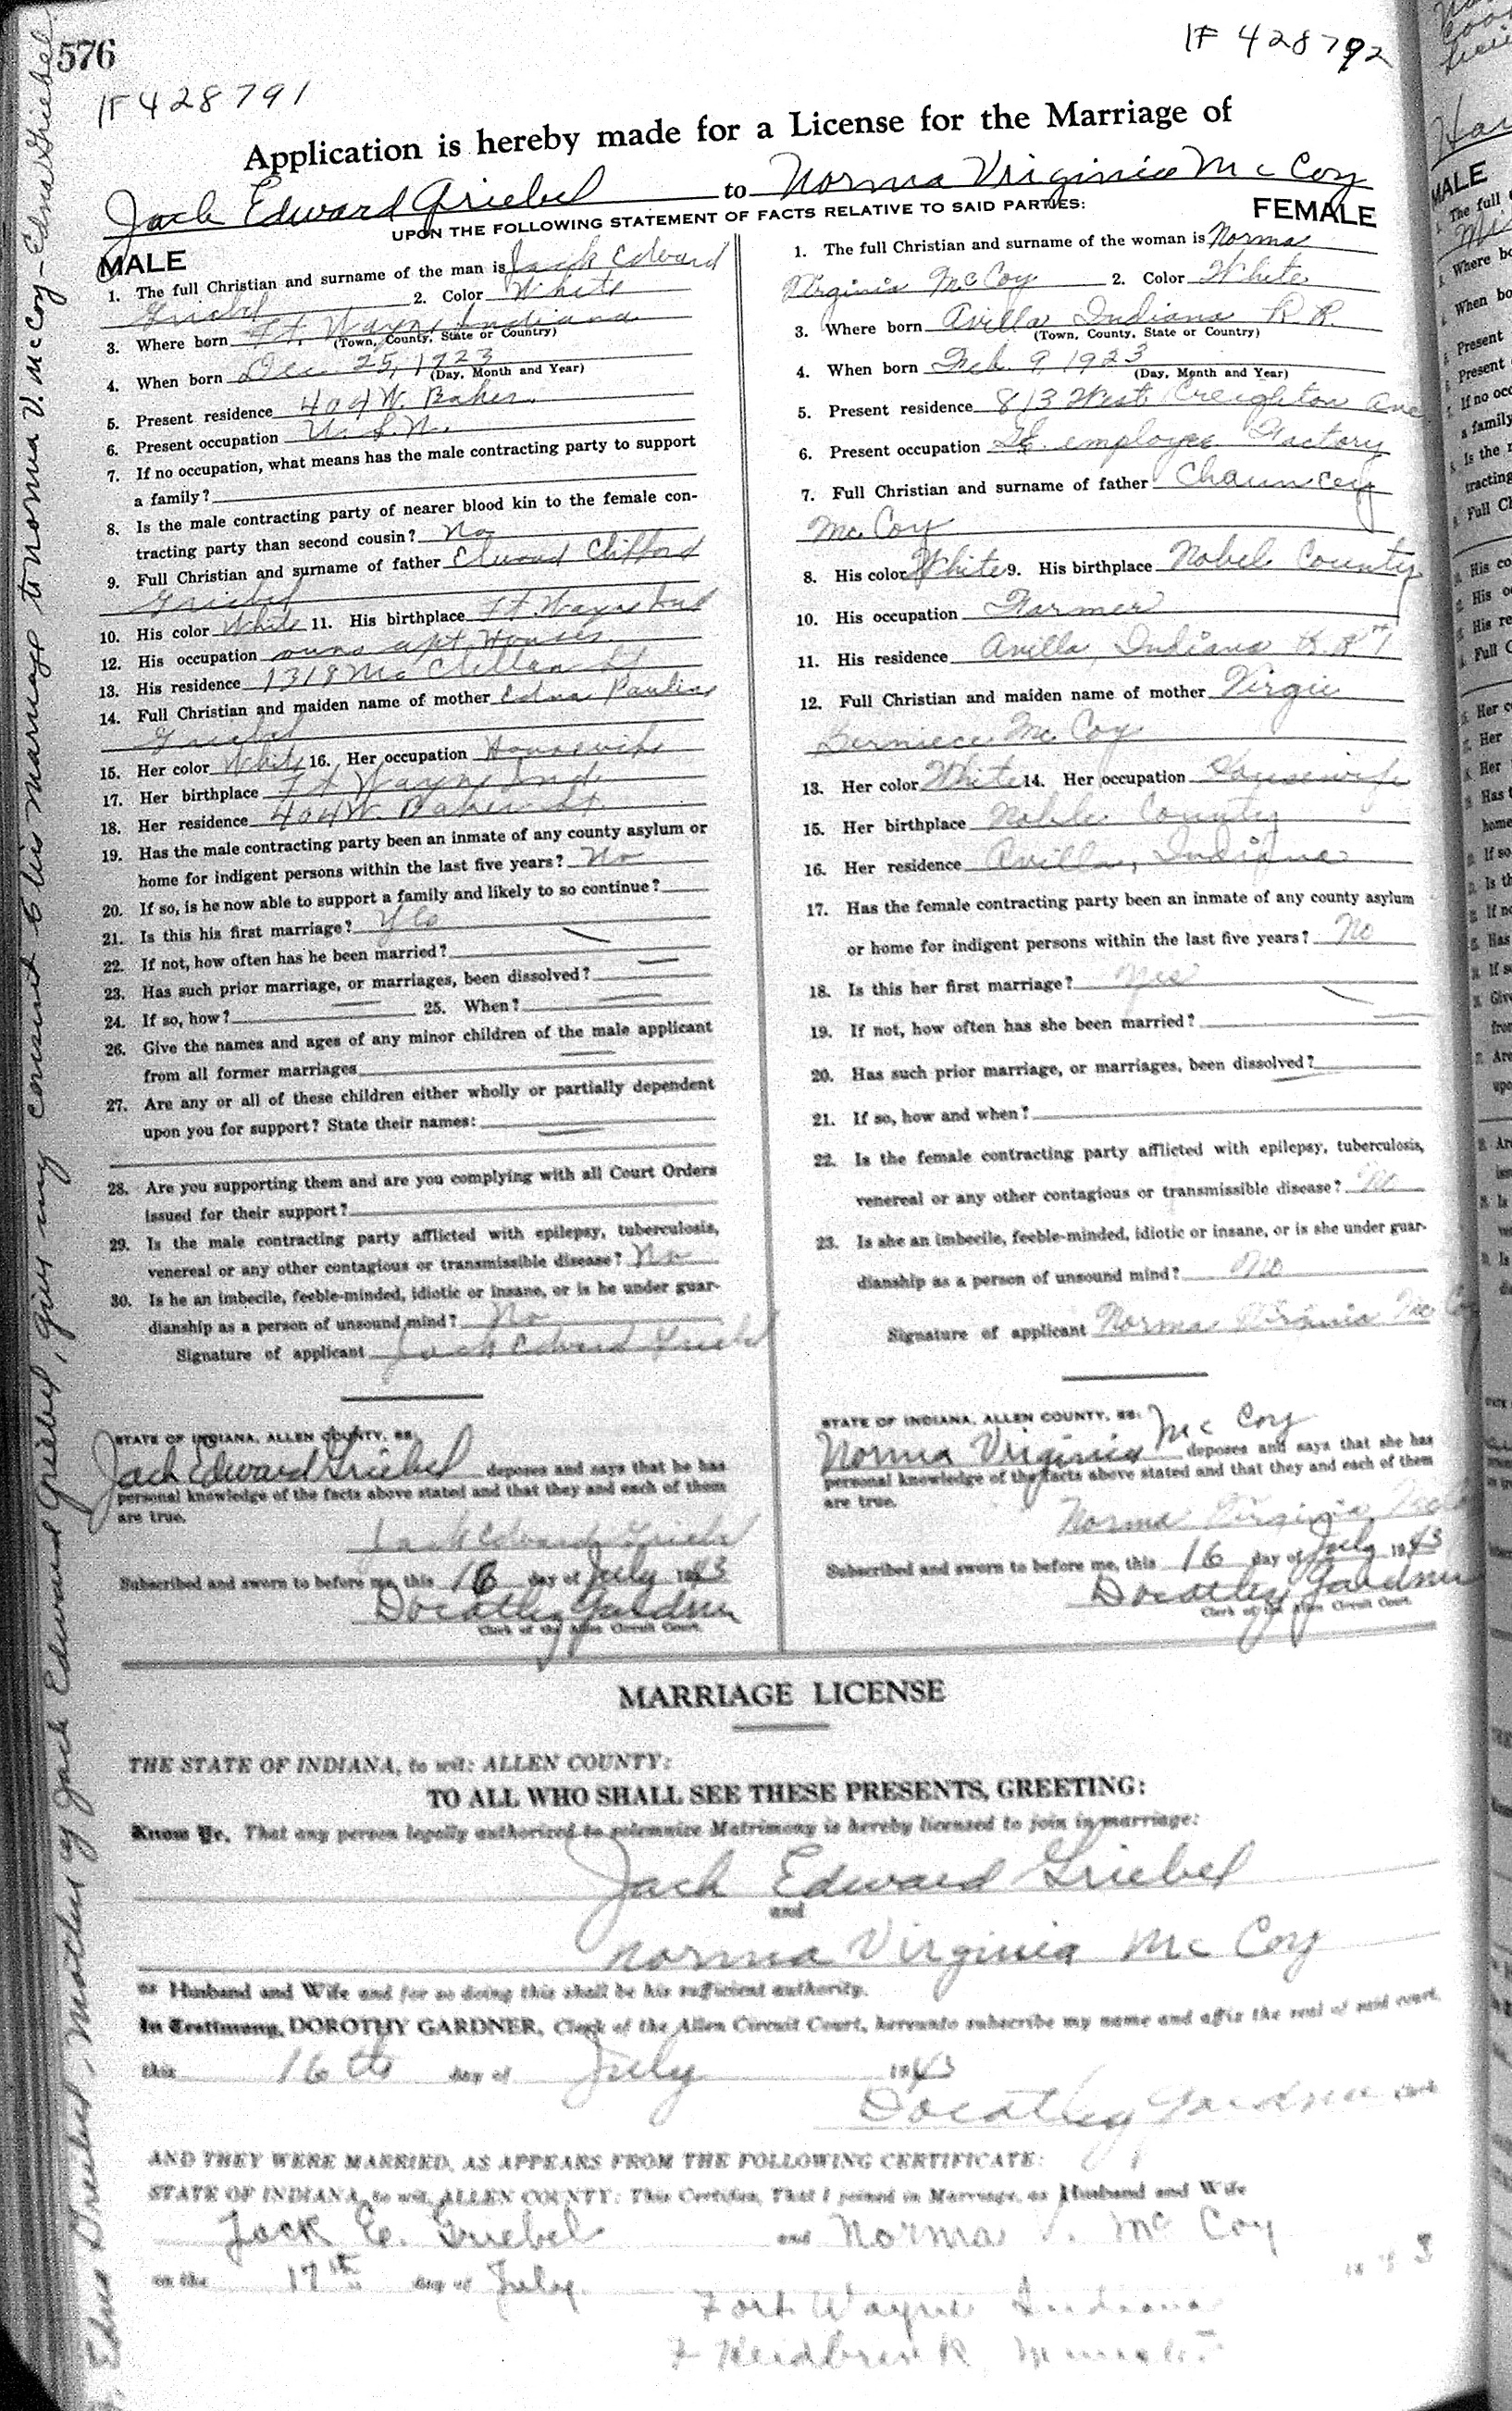 576
1F 428791
1F 428792
Application is hereby made for a License for the Marriage of
Jack Edward Griebel to Norma Virginia McCoy
UPON THE FOLLOWING STATEMENT OF FACTS RELATIVE TO SAID PARTIES:
MALE
1. The full Christian and surname of the man is Jack Edward
Griebel 2. Color White
3. Where born Ft. Wayne, Indiana
(Town, County, State or Country)
4. When born Dec 25, 1923
(Day, Month and Year)
5. Present residence 404 W. Baker
6. Present occupation U.S.N.
7. If no occupation, what means has the male contracting party to support
a family?
8. Is the male contracting party of nearer blood kin to the female con-
tracting party than second cousin? No
9. Full Christian and surname of father Elwood Clifford
Griebel
10. His color White 11. His birthplace Ft. Wayne Ind
12. His occupation owns apt Houses
13. His residence 1318 McClellan St
14. Full Christian and maiden name of mother Edna Pauline
Griebel
15. Her color White 16. Her occupation Housewife
17. Her birthplace Ft Wayne Ind.
18. Her residence 404 W. Baker St.
19. Has the male contracting party been an inmate of any county asylum or
home for indigent persons within the last five years? No
20. If so, is he now able to support a family and likely to so continue?
21. Is this his first marriage? Yes
22. If not, how often has he been married?
23. Has such prior marriage, or marriages, been dissolved?
24. If so, how? 25. When?
26. Give the names and ages of any minor children of the male applicant
from all former marriages
27. Are any or all of these children either wholly or partially dependent
upon you for support? State their names:
28. Are you supporting them and are you complying with all Court Orders
issued for their support?
29. Is the male contracting party afflicted with epilepsy, tuberculosis,
venereal or any other contagious or transmissible disease? No
30. Is he an imbecile, feeble-minded, idiotic or insane, or is he under guar-
dianship as a person of unsound mind? No
Signature of applicant Jack Edward Griebel
STATE OF INDIANA, ALLEN COUNTY, SS:
Jack Edward Griebel deposes and says that he has
personal knowledge of the facts above stated and that they and each of them
are true.
Jack Edward Griebel
Subscribed and sworn to before me, this 16 day of July 1943
Dorothy Gardner
Clerk of the Allen Circuit Court.
FEMALE
1. The full Christian and surname of the woman is Norma
Virginia McCoy 2. Color White
3. Where born Avilla Indiana R.R.
(Town, County, State or Country)
4. When born Feb. 9, 1923
(Day, Month and Year)
5. Present residence 813 West Creighton Ave
6. Present occupation employee Factory
7. Full Christian and surname of father Chauncey
McCoy
8. His color White 9. His birthplace Nobel County
10. His occupation Farmer
11. His residence Avilla, Indiana R.R #1
12. Full Christian and maiden name of mother Virgie
Berniece McCoy
13. Her color White 14. Her occupation Housewife
15. Her birthplace Noble County
16. Her residence Avilla, Indiana
17. Has the female contracting party been an inmate of any county asylum
or home for indigent persons within the last five years? No
18. Is this her first marriage? Yes
19. If not, how often has she been married?
20. Has such prior marriage, or marriages, been dissolved?
21. If so, how and when?
22. Is the female contracting party afflicted with epilepsy, tuberculosis,
venereal or any other contagious or transmissible disease? No
23. Is she an imbecile, feeble-minded, idiotic or insane, or is she under guar-
dianship as a person of unsound mind? No
Signature of applicant Norma Virginia McCoy
STATE OF INDIANA, ALLEN COUNTY, SS:
Norma Virginia McCoy deposes and says that she has
personal knowledge of the facts above stated and that they and each of them
are true.
Norma Virginia
Subscribed and sworn to before me, this 16 day of July 1943
Dorothy Gardner
Clerk of the Allen Circuit Court.
MARRIAGE LICENSE
THE STATE OF INDIANA, to wit: ALLEN COUNTY:
TO ALL WHO SHALL SEE THESE PRESENTS, GREETING:
Know Ye, That any person legally authorized to solemnize Matrimony is hereby licensed to join in marriage:
Jack Edward Griebel
and
Norma Virginia McCoy
as Husband and Wife and for so doing this shall be his sufficient authority.
In Testimony, DOROTHY GARDNER, Clerk of the Allen Circuit Court, hereunto subscribe my name and affix the seal of said court,
this 16th day of July 1943
Dorothy Gardner
AND THEY WERE MARRIED, AS APPEARS FROM THE FOLLOWING CERTIFICATE:
STATE OF INDIANA, to wit, ALLEN COUNTY: This Certifies, That I joined in Marriage, as Husband and Wife
Jack E. Griebel and Norma V. McCoy
on the 17th day of July 1943
Fort Wayne Indiana
Heidbrink
Edna Griebel, Mother of Jack Edward Griebel, give my consent to his marriage to Norma V. McCoy - Edna Griebel